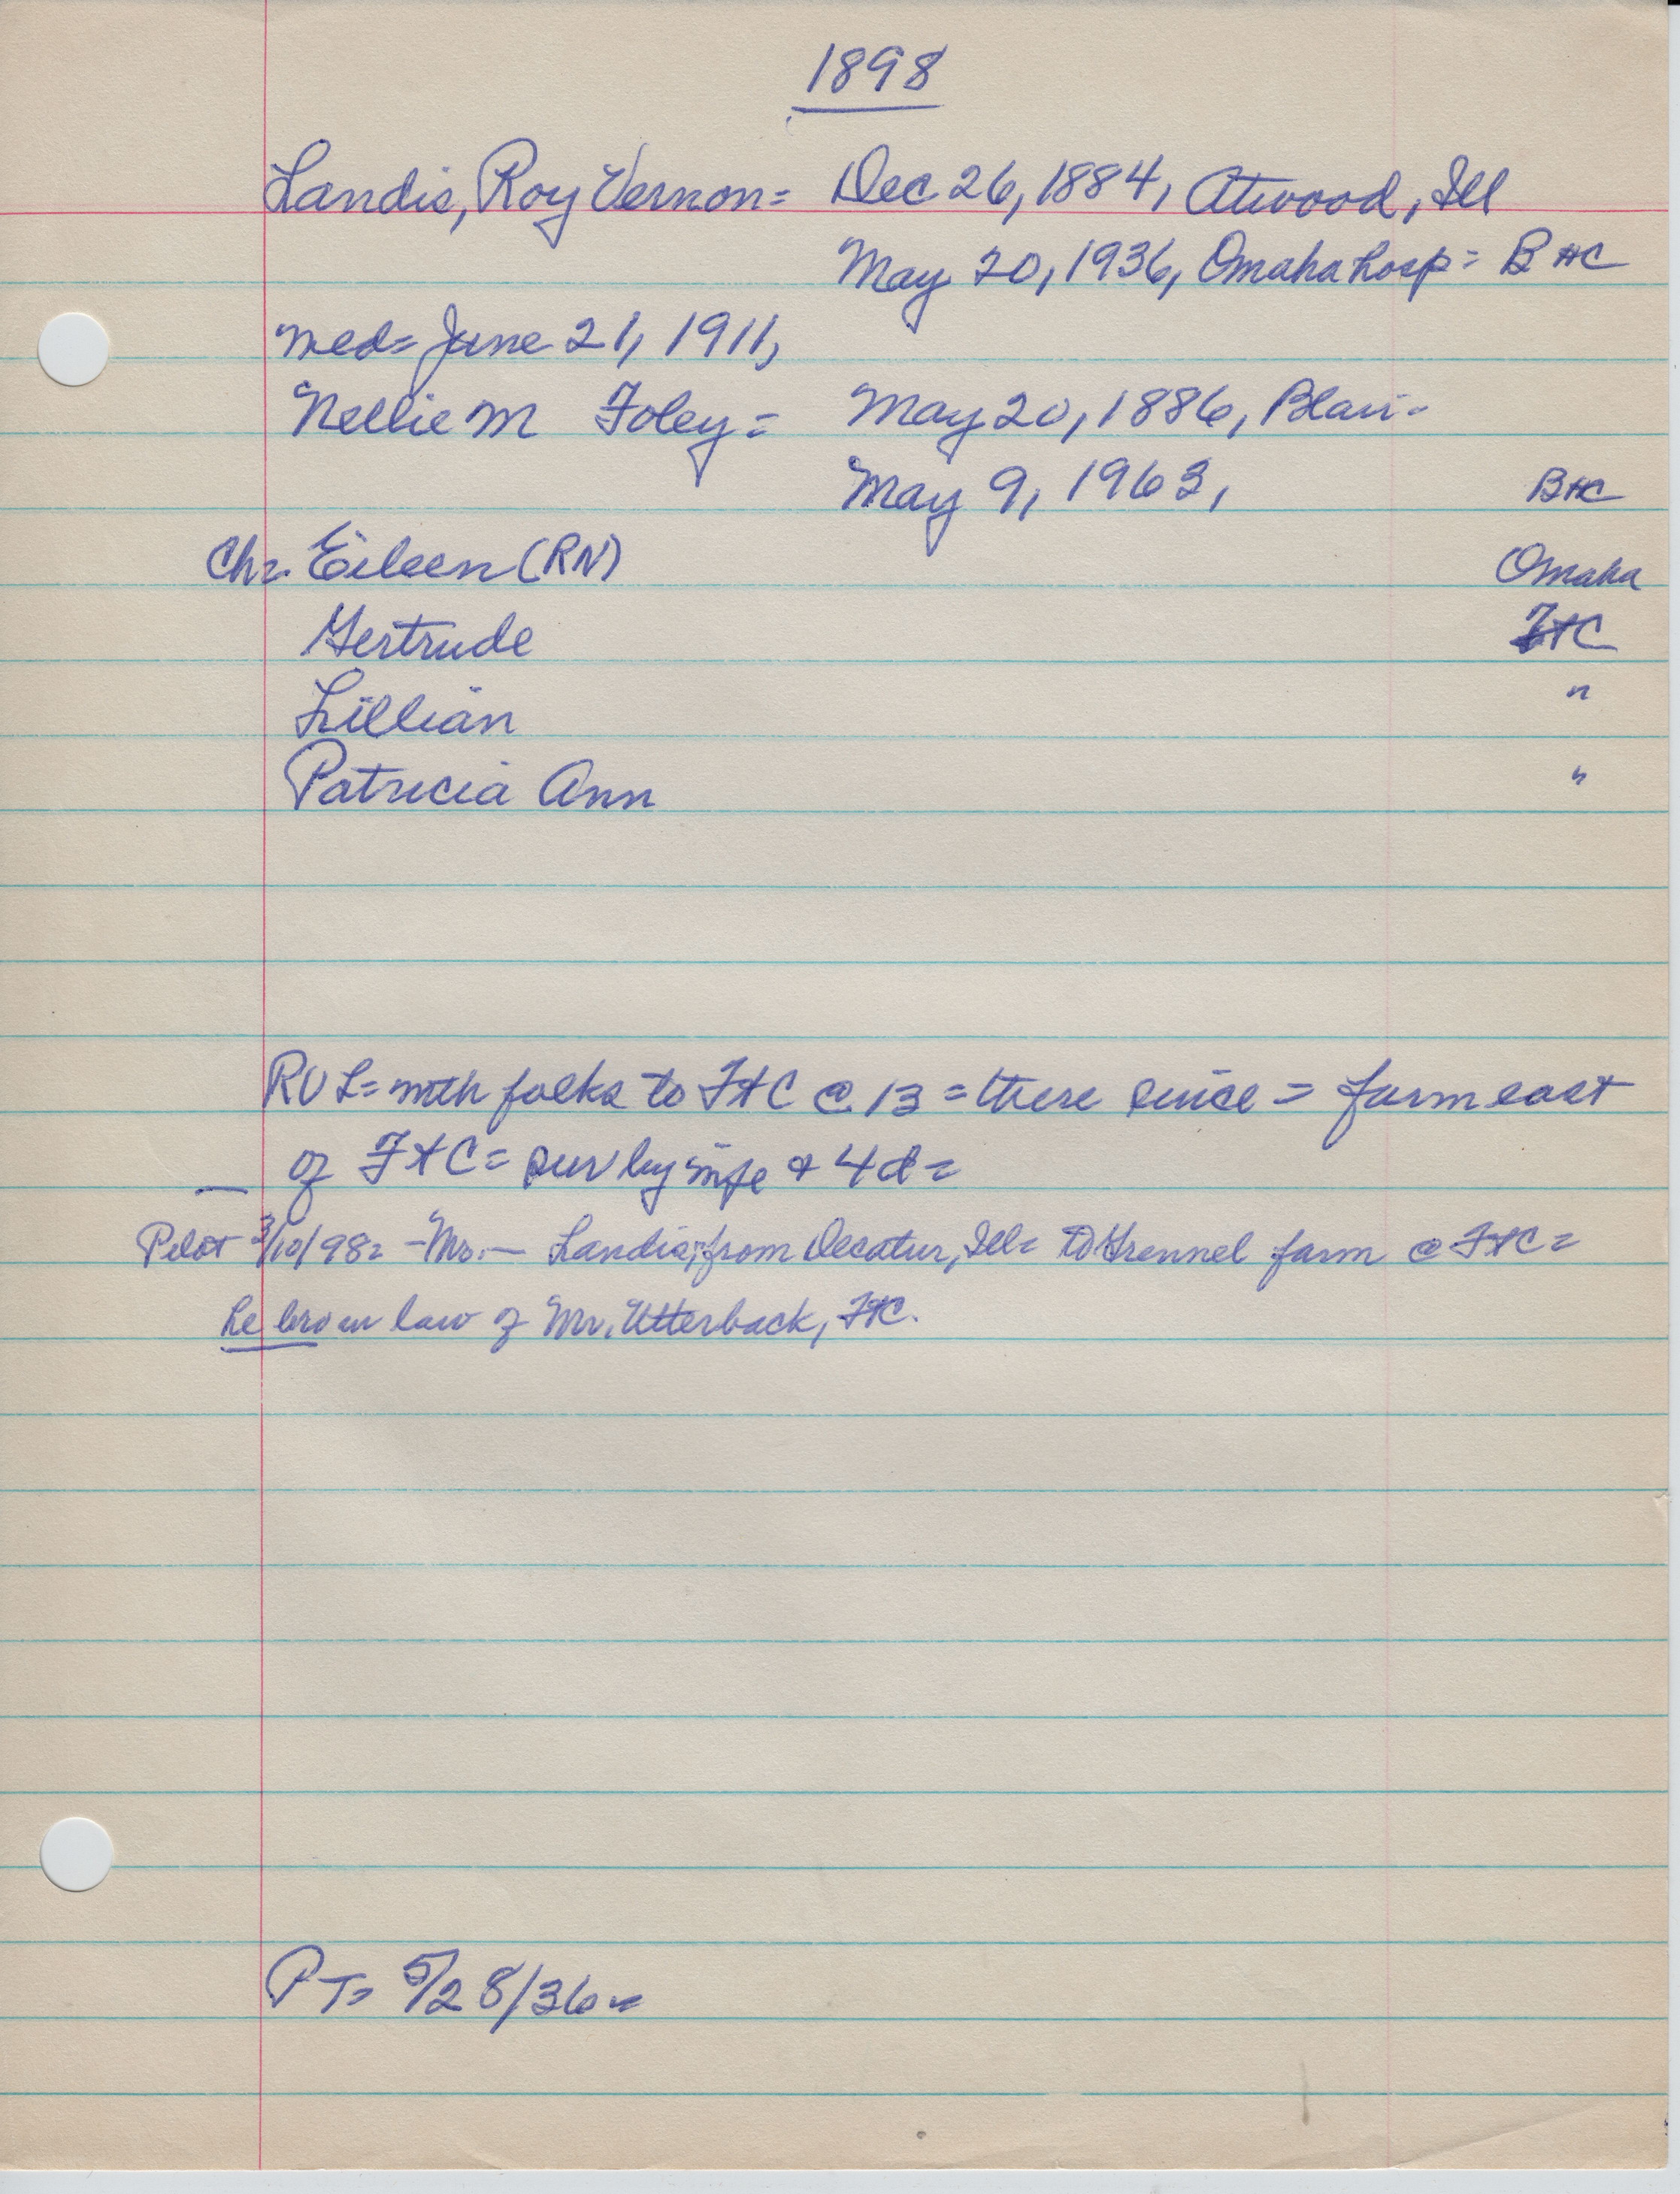 1898
Landis, Roy Vernon= Dec 26, 1884, Atwood, Ill
May 20, 1936, Omaha hosp= B HC
med= June 21, 1911,
Nellie M Foley= May 20, 1886, Blair-
May 9, 1963, BHC
Ch= Eileen (RN) Omaha
Gertrude FtC
Lillian "
Patricia Ann "
RVL= with folks to FtC @ 13 = there since = farm east
of FtC= sur by wife & 4d=
Pilot 3/10/98= -Mr.— Landis, from Decatur, Ill= to Grennel farm @ FtC=
he bro in law of Mr. Utterback, FtC.
PT= 5/28/36=